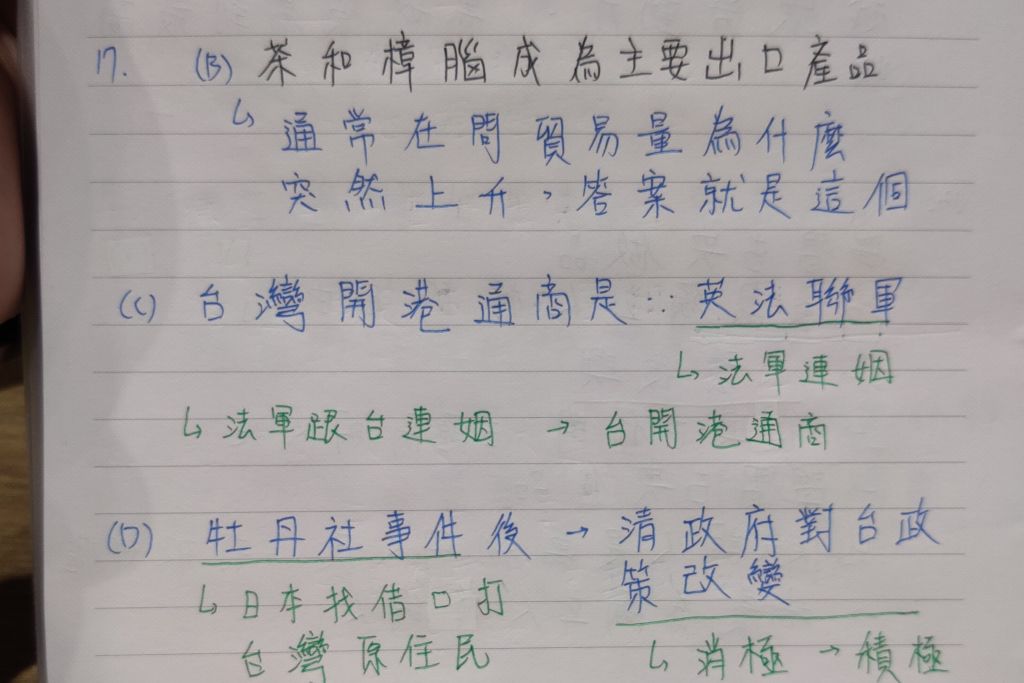 17. (B) 茶和樟腦成為主要出口產品
↳ 通常在問貿易量為什麼
突然上升，答案就是這個
(C) 台灣開港通商是…英法聯軍
↳ 法軍連姻
↳ 法軍跟台連姻 → 台開港通商
(D) 牡丹社事件後 → 清政府對台政
策改變
↳ 日本找借口打
台灣原住民
↳ 消極 → 積極